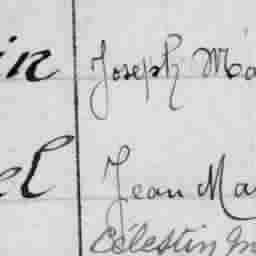 in Joseph Ma
el Jean Ma
Célestin